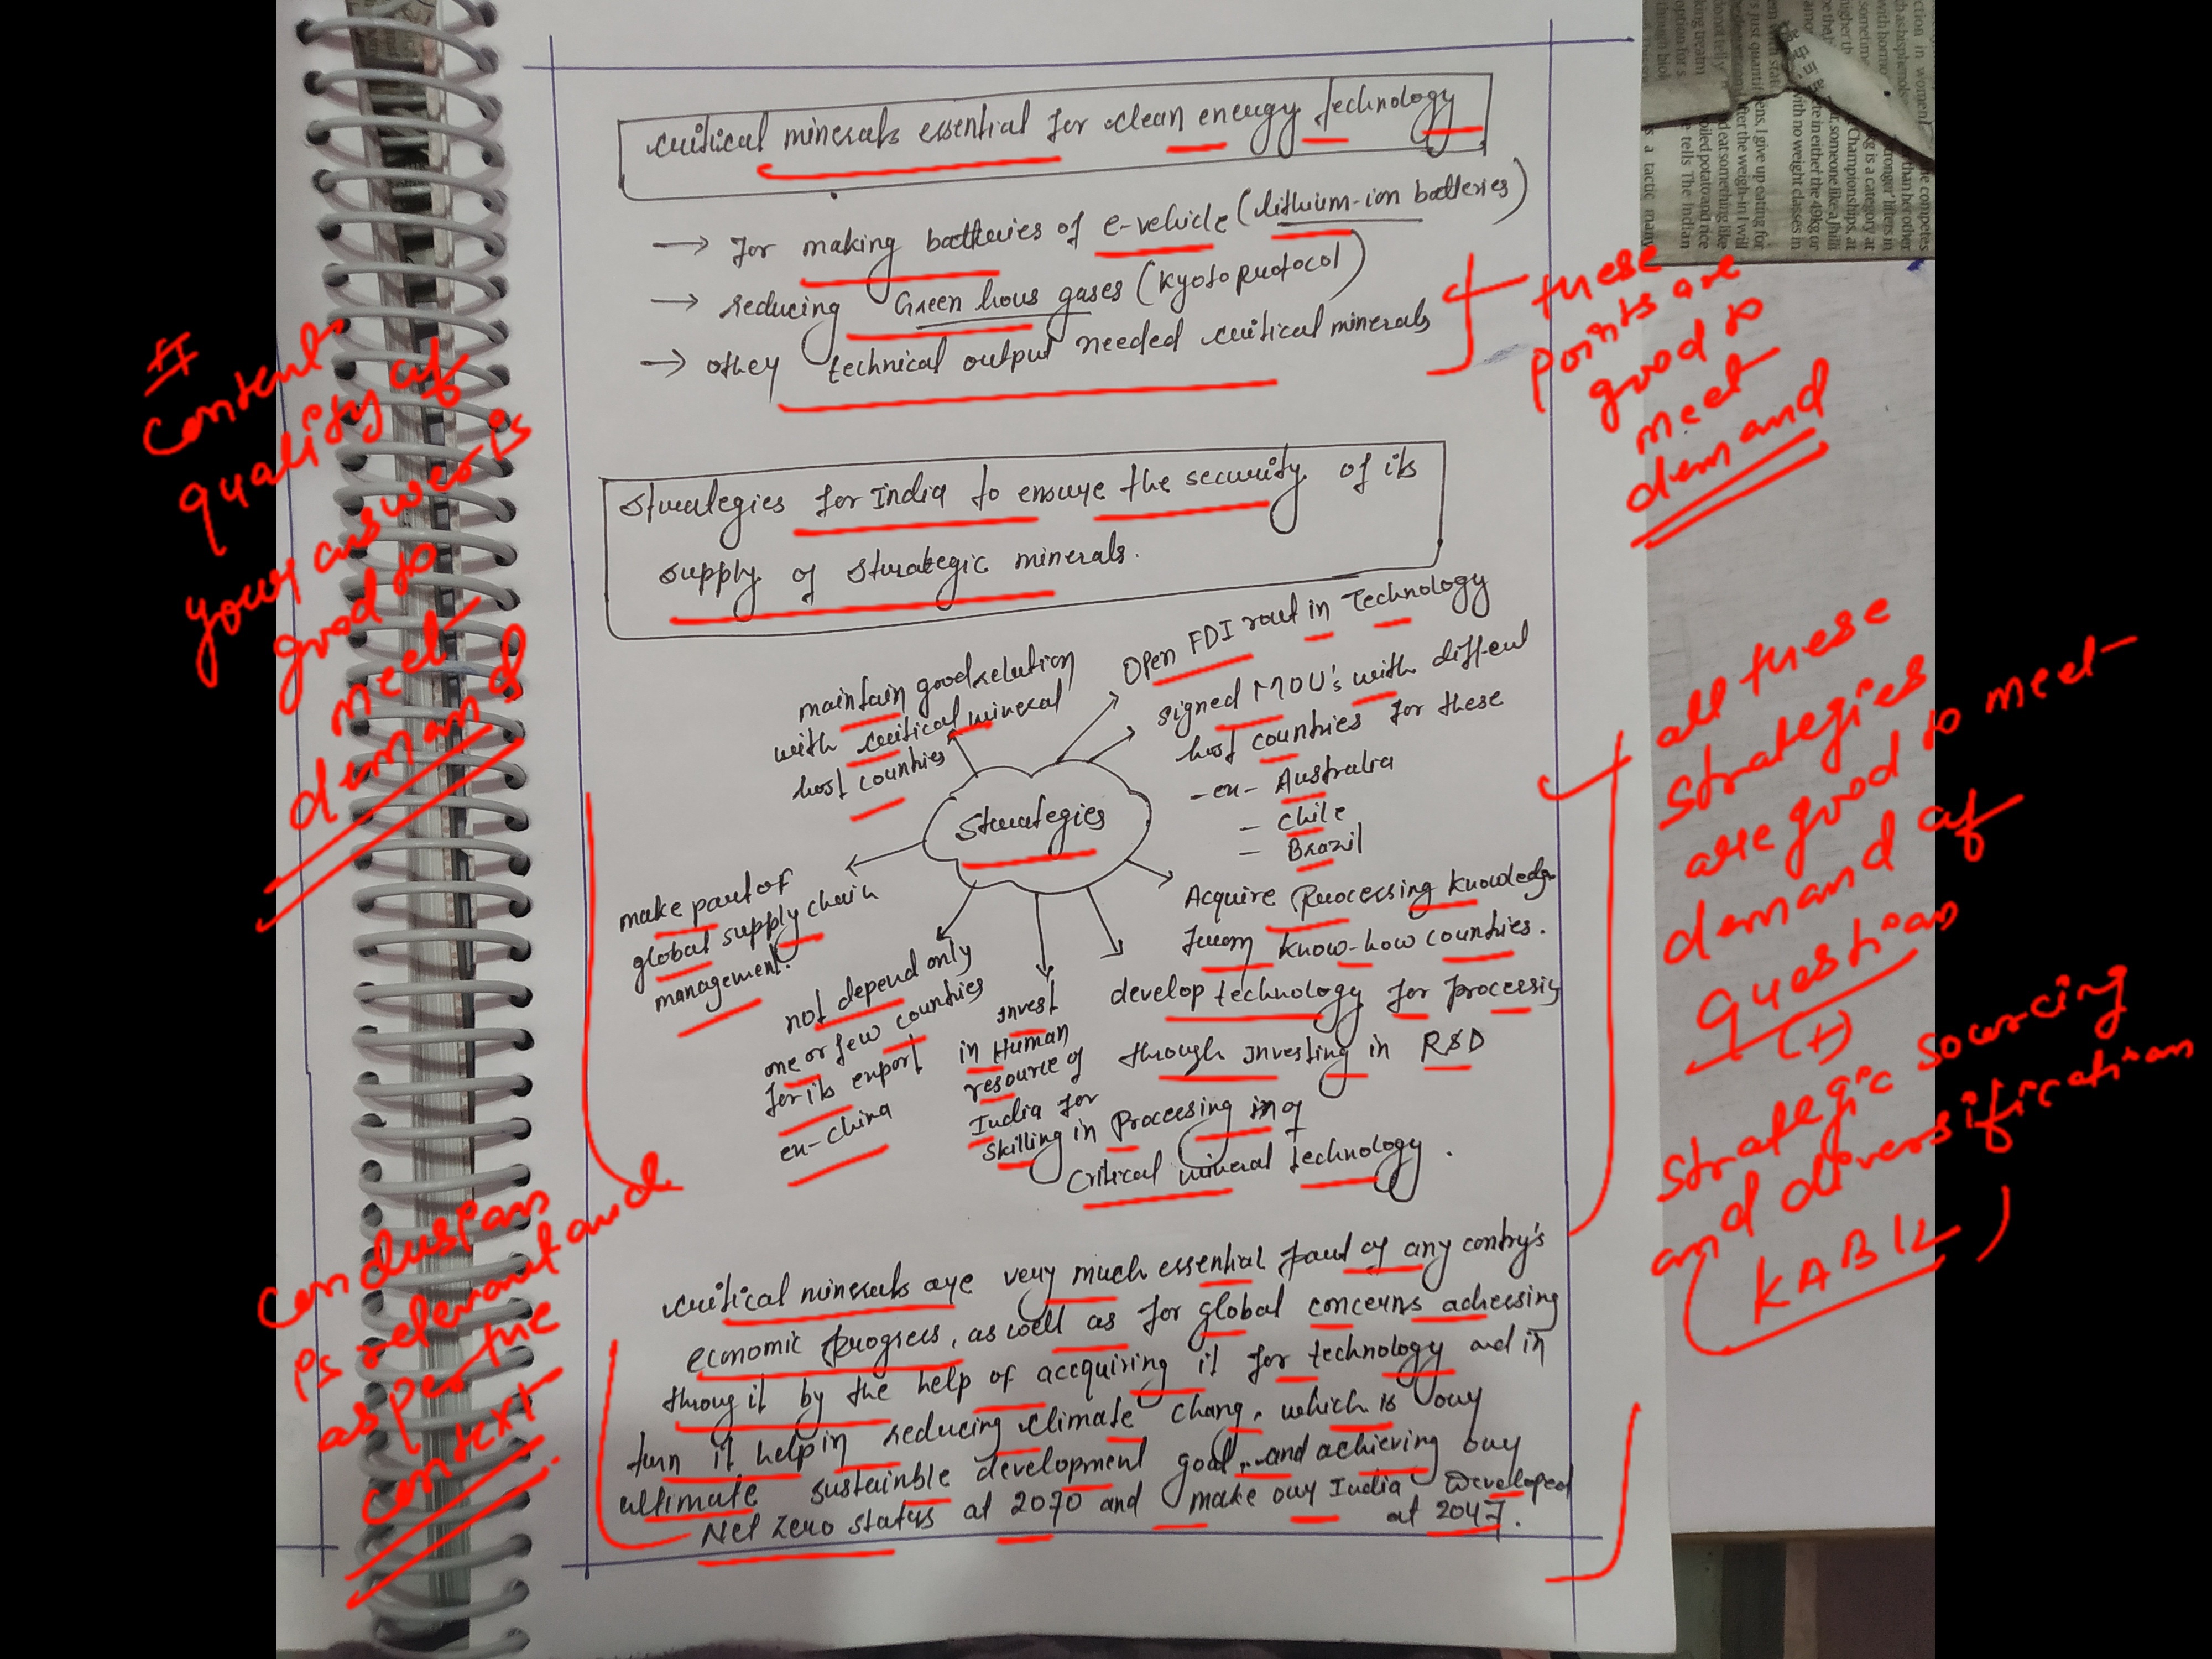 critical minerals essential for clean energy technology
→ for making batteries of e-vehicle (lithium-ion batteries)
→ reducing Green hous gases (kyoto protocol)
→ other technical output needed critical minerals
these
points are
good to
meet
demand
#
content
quality of
your answer is
good to
meet
demand
Strategies for India to ensure the security of its
supply of strategic minerals.
Strategies
maintain good relation
with critical mineral
host countries
Open FDI rout in Technology
signed MOU's with diffent
host countries for these
- ex- Australia
- Chile
- Brazil
Acquire Processing knowledge
from know-how countries.
develop technology for processig
through investing in R&D
invest
in Human
resource of
India for
skilling in Processing in of
Critical mineral technology.
not depend only
one or few countries
for its export
ex- China
make part of
global supply chain
management.
all these
strategies
are good to meet
demand of
question
(+)
strategic sourcing
and diversification
(KABIL)
critical minerals are very much essential part of any contry's
economic progress, as well as for global concerns adressing
throug it by the help of accquiring it for technology and in
turn it help in reducing climate chang, which is our
ultimate sustainble development goal, and achieving our
Net zero status at 2070 and make our India Developed
at 2047.
conclusion
is relevant and
as per the
context